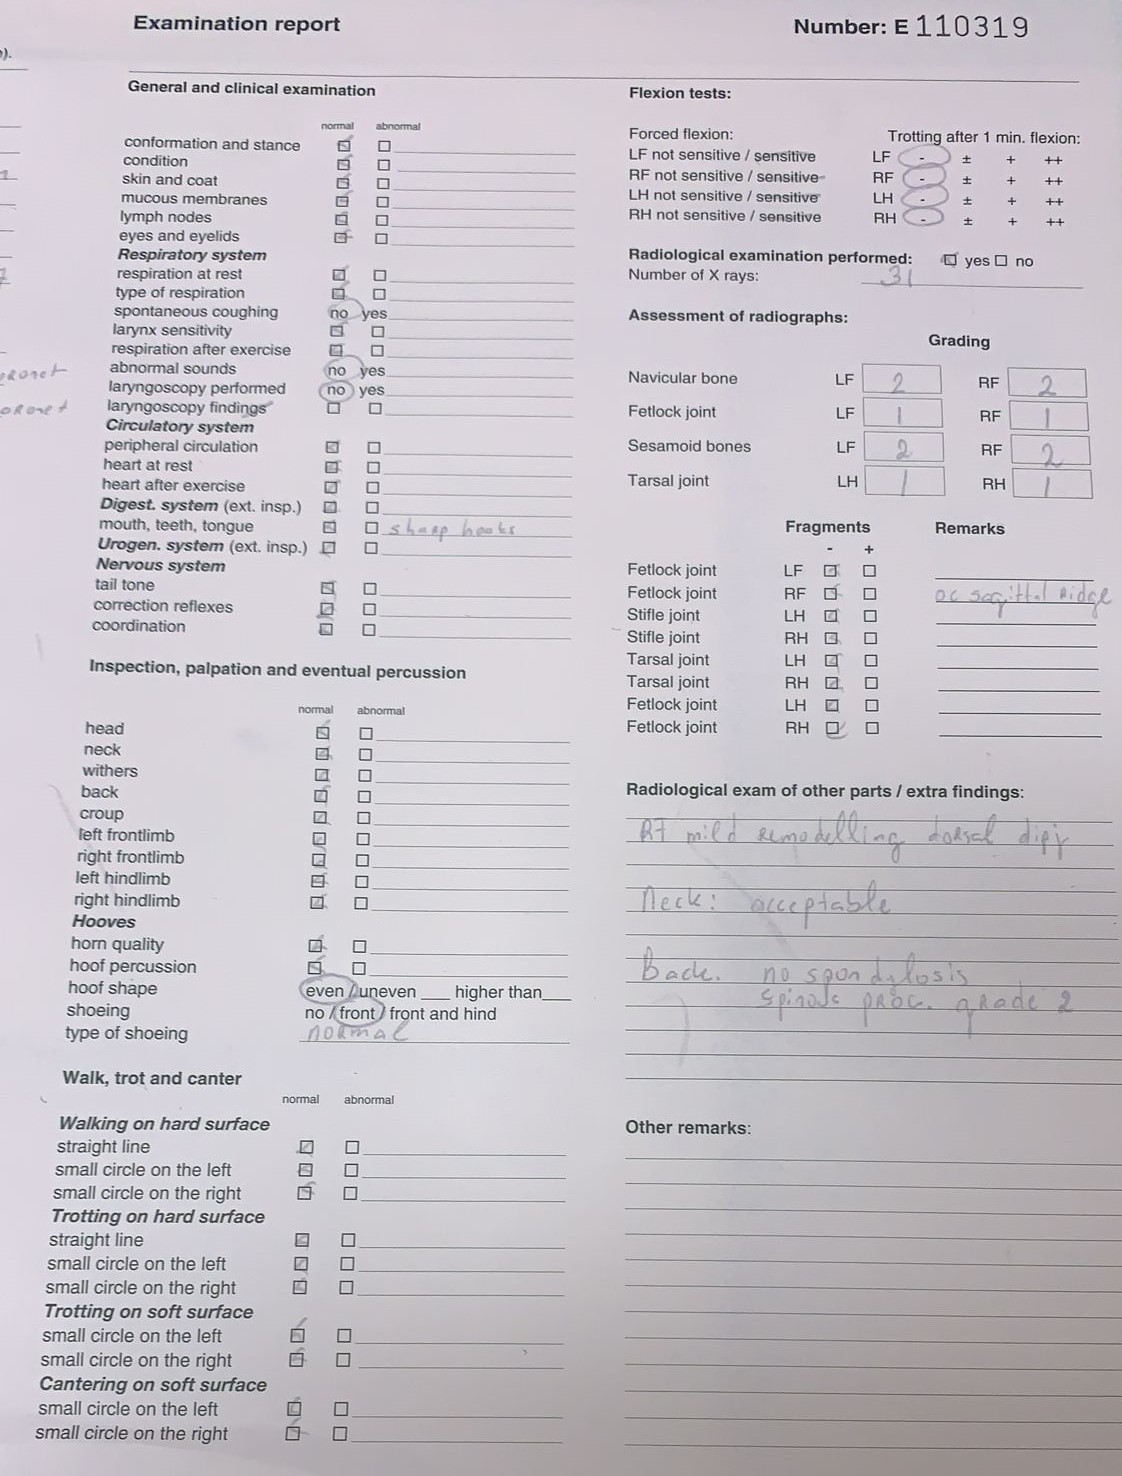 Examination report
Number: E 110319
General and clinical examination
normal abnormal
conformation and stance
condition
skin and coat
mucous membranes
lymph nodes
eyes and eyelids
Respiratory system
respiration at rest
type of respiration
spontaneous coughing no yes
larynx sensitivity
respiration after exercise
abnormal sounds no yes
laryngoscopy performed no yes
laryngoscopy findings
Circulatory system
peripheral circulation
heart at rest
heart after exercise
Digest. system (ext. insp.)
mouth, teeth, tongue sharp hooks
Urogen. system (ext. insp.)
Nervous system
tail tone
correction reflexes
coordination
Inspection, palpation and eventual percussion
normal abnormal
head
neck
withers
back
croup
left frontlimb
right frontlimb
left hindlimb
right hindlimb
Hooves
horn quality
hoof percussion
hoof shape even / uneven ___ higher than___
shoeing no / front / front and hind
type of shoeing normal
Walk, trot and canter
normal abnormal
Walking on hard surface
straight line
small circle on the left
small circle on the right
Trotting on hard surface
straight line
small circle on the left
small circle on the right
Trotting on soft surface
small circle on the left
small circle on the right
Cantering on soft surface
small circle on the left
small circle on the right
Flexion tests:
Forced flexion: Trotting after 1 min. flexion:
LF not sensitive / sensitive LF - ± + ++
RF not sensitive / sensitive RF - ± + ++
LH not sensitive / sensitive LH - ± + ++
RH not sensitive / sensitive RH - ± + ++
Radiological examination performed: yes no
Number of X rays: 31
Assessment of radiographs:
Grading
Navicular bone LF 2 RF 2
Fetlock joint LF 1 RF 1
Sesamoid bones LF 2 RF 2
Tarsal joint LH 1 RH 1
Fragments Remarks
- +
Fetlock joint LF
Fetlock joint RF oc sagittal ridge
Stifle joint LH
Stifle joint RH
Tarsal joint LH
Tarsal joint RH
Fetlock joint LH
Fetlock joint RH
Radiological exam of other parts / extra findings:
RF mild remodelling dorsal dipj
Neck: acceptable
Back. no spondylosis
spinous proc. grade 2
Other remarks: